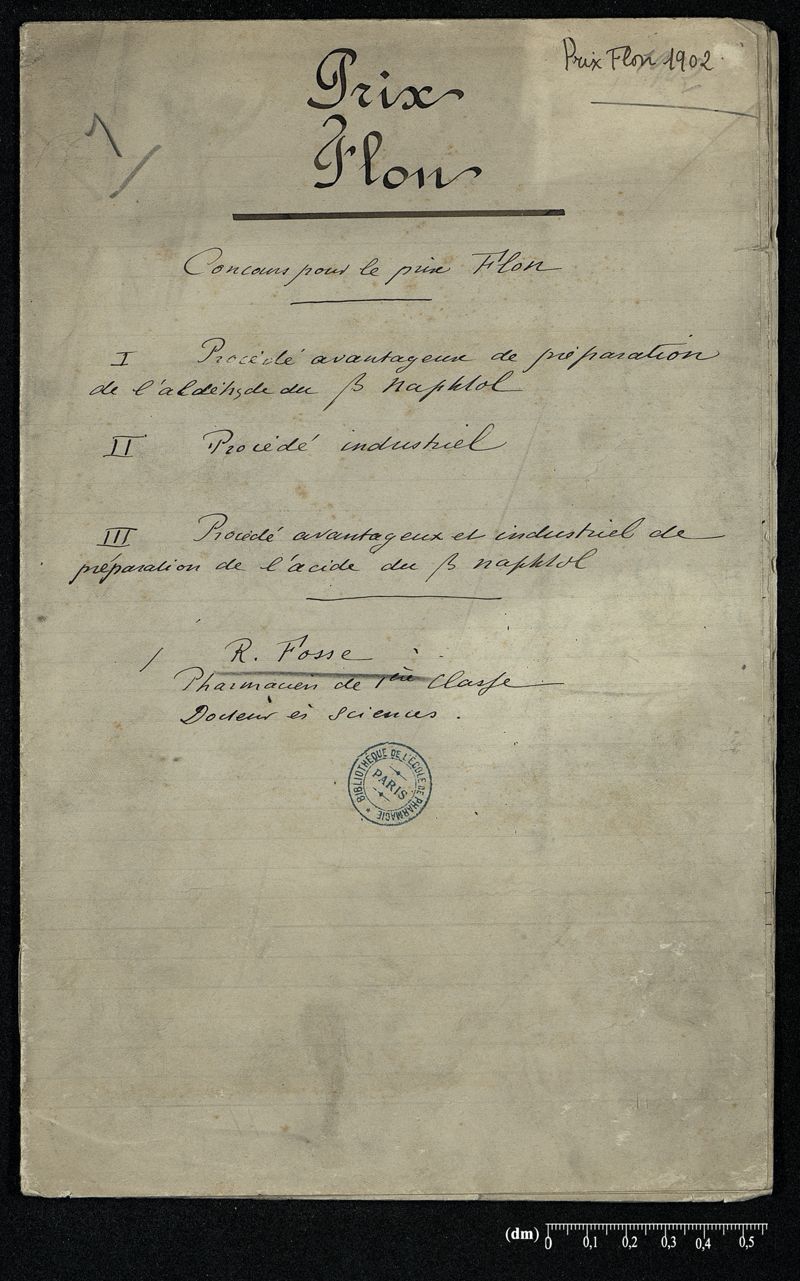 Prix Flon 1902
Prix
Flon
Concours pour le prix Flon
I Procédé avantageux de préparation
de l'aldéhyde du β naphtol
II Procédé industriel
III Procédé avantageux et industriel de
préparation de l'acide du β naphtol
R. Fosse
Pharmacien de 1ère Classe
Docteur ès Sciences.
BIBLIOTHÈQUE DE L'ÉCOLE DE PHARMACIE
PARIS
(dm) 0 0,1 0,2 0,3 0,4 0,5